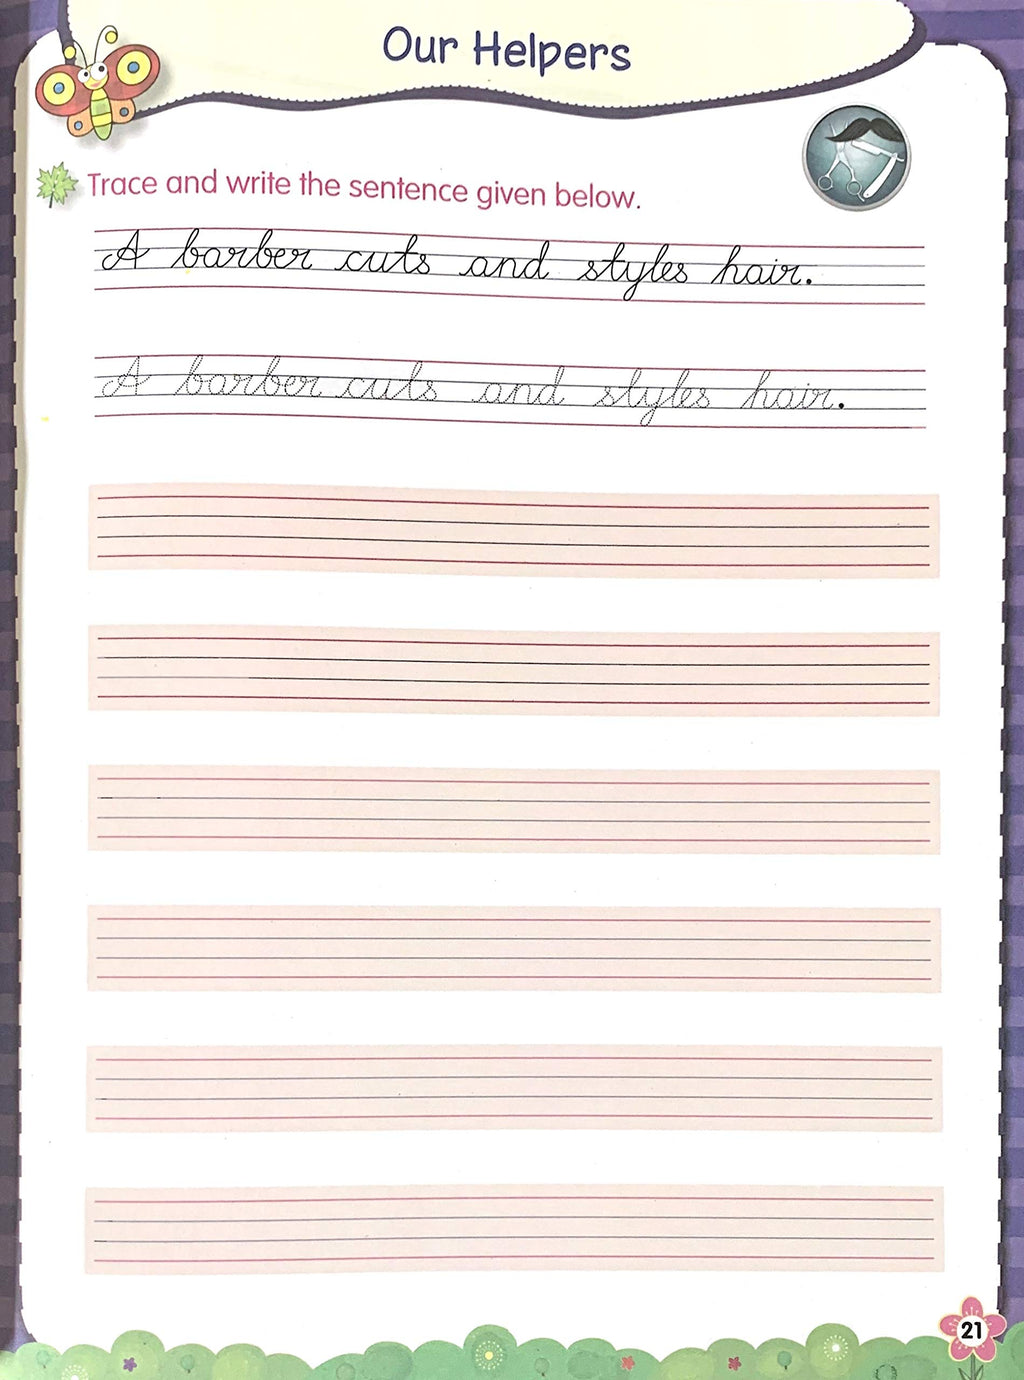 Our Helpers
Trace and write the sentence given below.
A barber cuts and styles hair.
A barber cuts and styles hair.
21